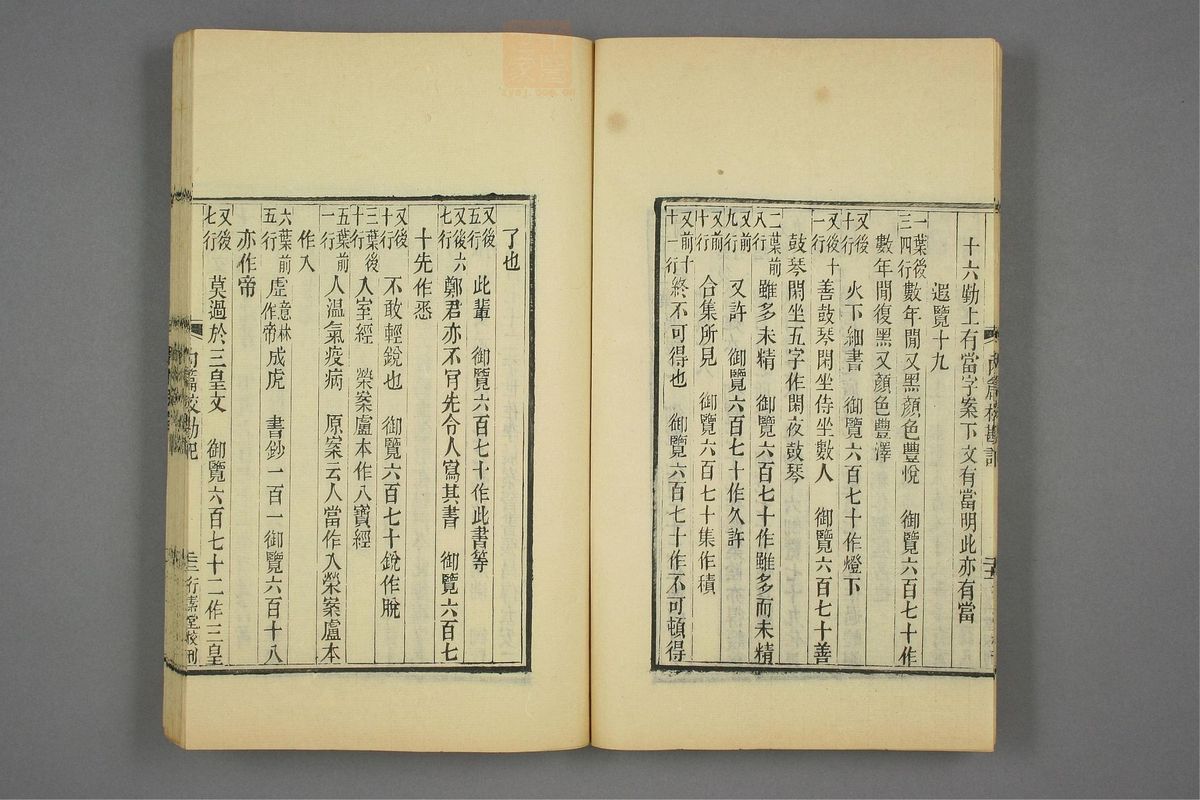 十六勤上有當字案下文有當明此亦有當
遐覽十九
一葉後三四行 數年閒又黑顏色豐悅 御覽六百七十作
數年閒復黑又顏色豐澤
又後十行 火下細書 御覽六百七十作燈下
又後十一行 善鼓琴閑坐侍坐數人 御覽六百七十善
鼓琴閑坐五字作閑夜鼓琴
二葉前八行 雖多未精 御覽六百七十作雖多而未精
又前九行 又許 御覽六百七十作久許
又前十行 合集所見 御覽六百七十集作積
又前十十一行 終不可得也 御覽六百七十作不可頓得
了也
又後五行 此輩 御覽六百七十作此書等
又後六七行 鄭君亦不肎先令人寫其書 御覽六百七
十先作悉
又後十行 不敢輕銳也 御覽六百七十銳作脫
三葉後十行 入室經 榮案盧本作八寶經
五葉前一行 人溫氣疫病 原案云人當作入榮案盧本
作入
六葉前五行 虛意林作帝成虎 書鈔一百一御覽六百十八
亦作帝
又後七行 莫過於三皇文 御覽六百七十二作三皇
內篇校勘記
行素堂校刊